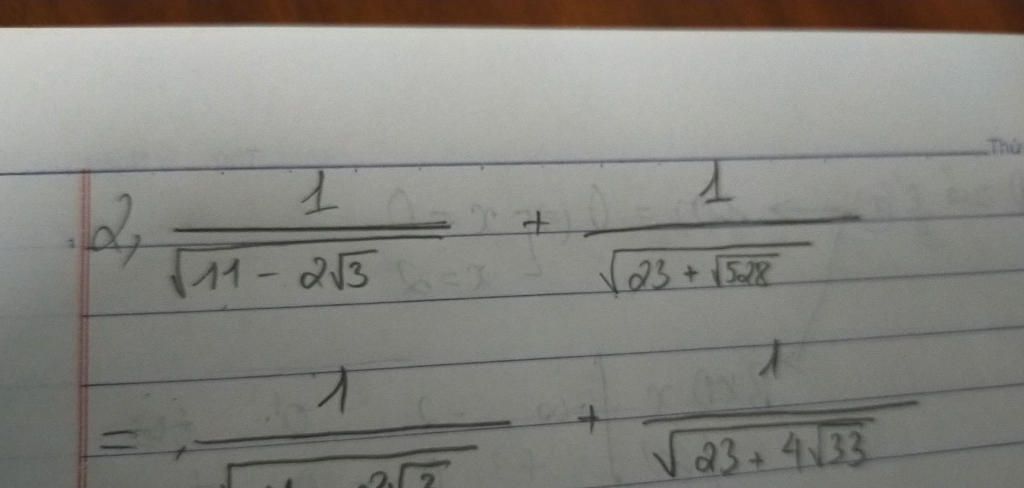 Thứ
2, 1/√(11 - 2√3) + 1/√(23 + √528)
= 1/√(11 - 2√3) + 1/√(23 + 4√33)